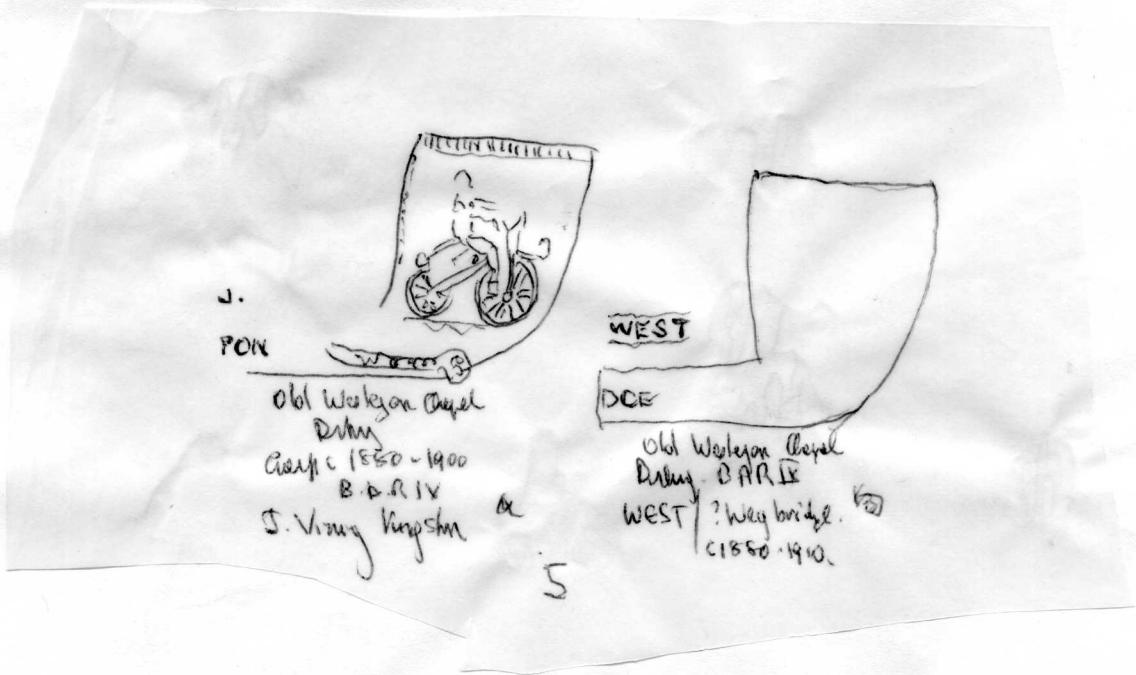 J.
PON
Old Wesleyan Chapel
c 1850-1900
B.A.R IV
J. Viney Kingston
a
WEST
DGE
Old Wesleyan Chapel
BAR IV
WEST / ? Weybridge.
c1880-1910.
5